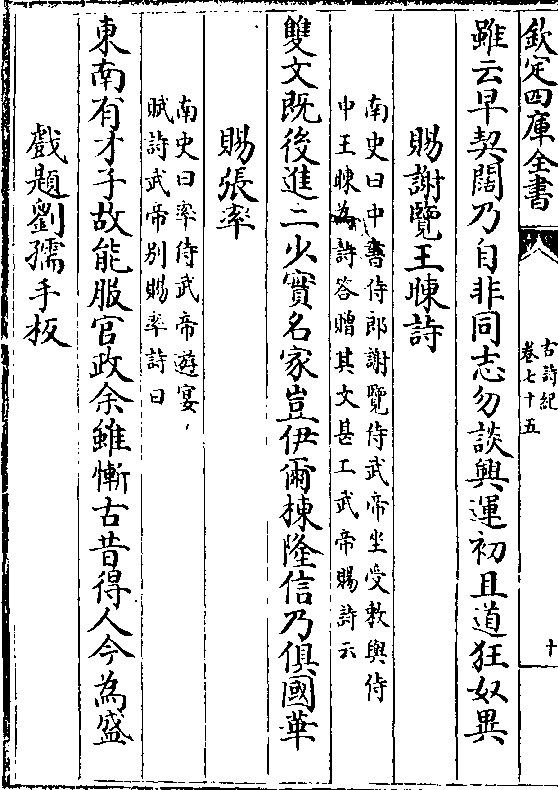 欽定四庫全書
古詩紀
卷七十五
十
雖云早契闊乃自非同志勿談興運初且道狂奴異
賜謝覽王暕詩
南史曰中書侍郎謝覽侍武帝坐受敕與侍
中王暕為詩答贈其文甚工武帝賜詩云
雙文既後進二少實名家豈伊爾棟隆信乃俱國華
賜張率
南史曰率侍武帝遊宴
賦詩武帝別賜率詩曰
東南有才子故能服官政余雖慚古昔得人今為盛
戲題劉孺手板